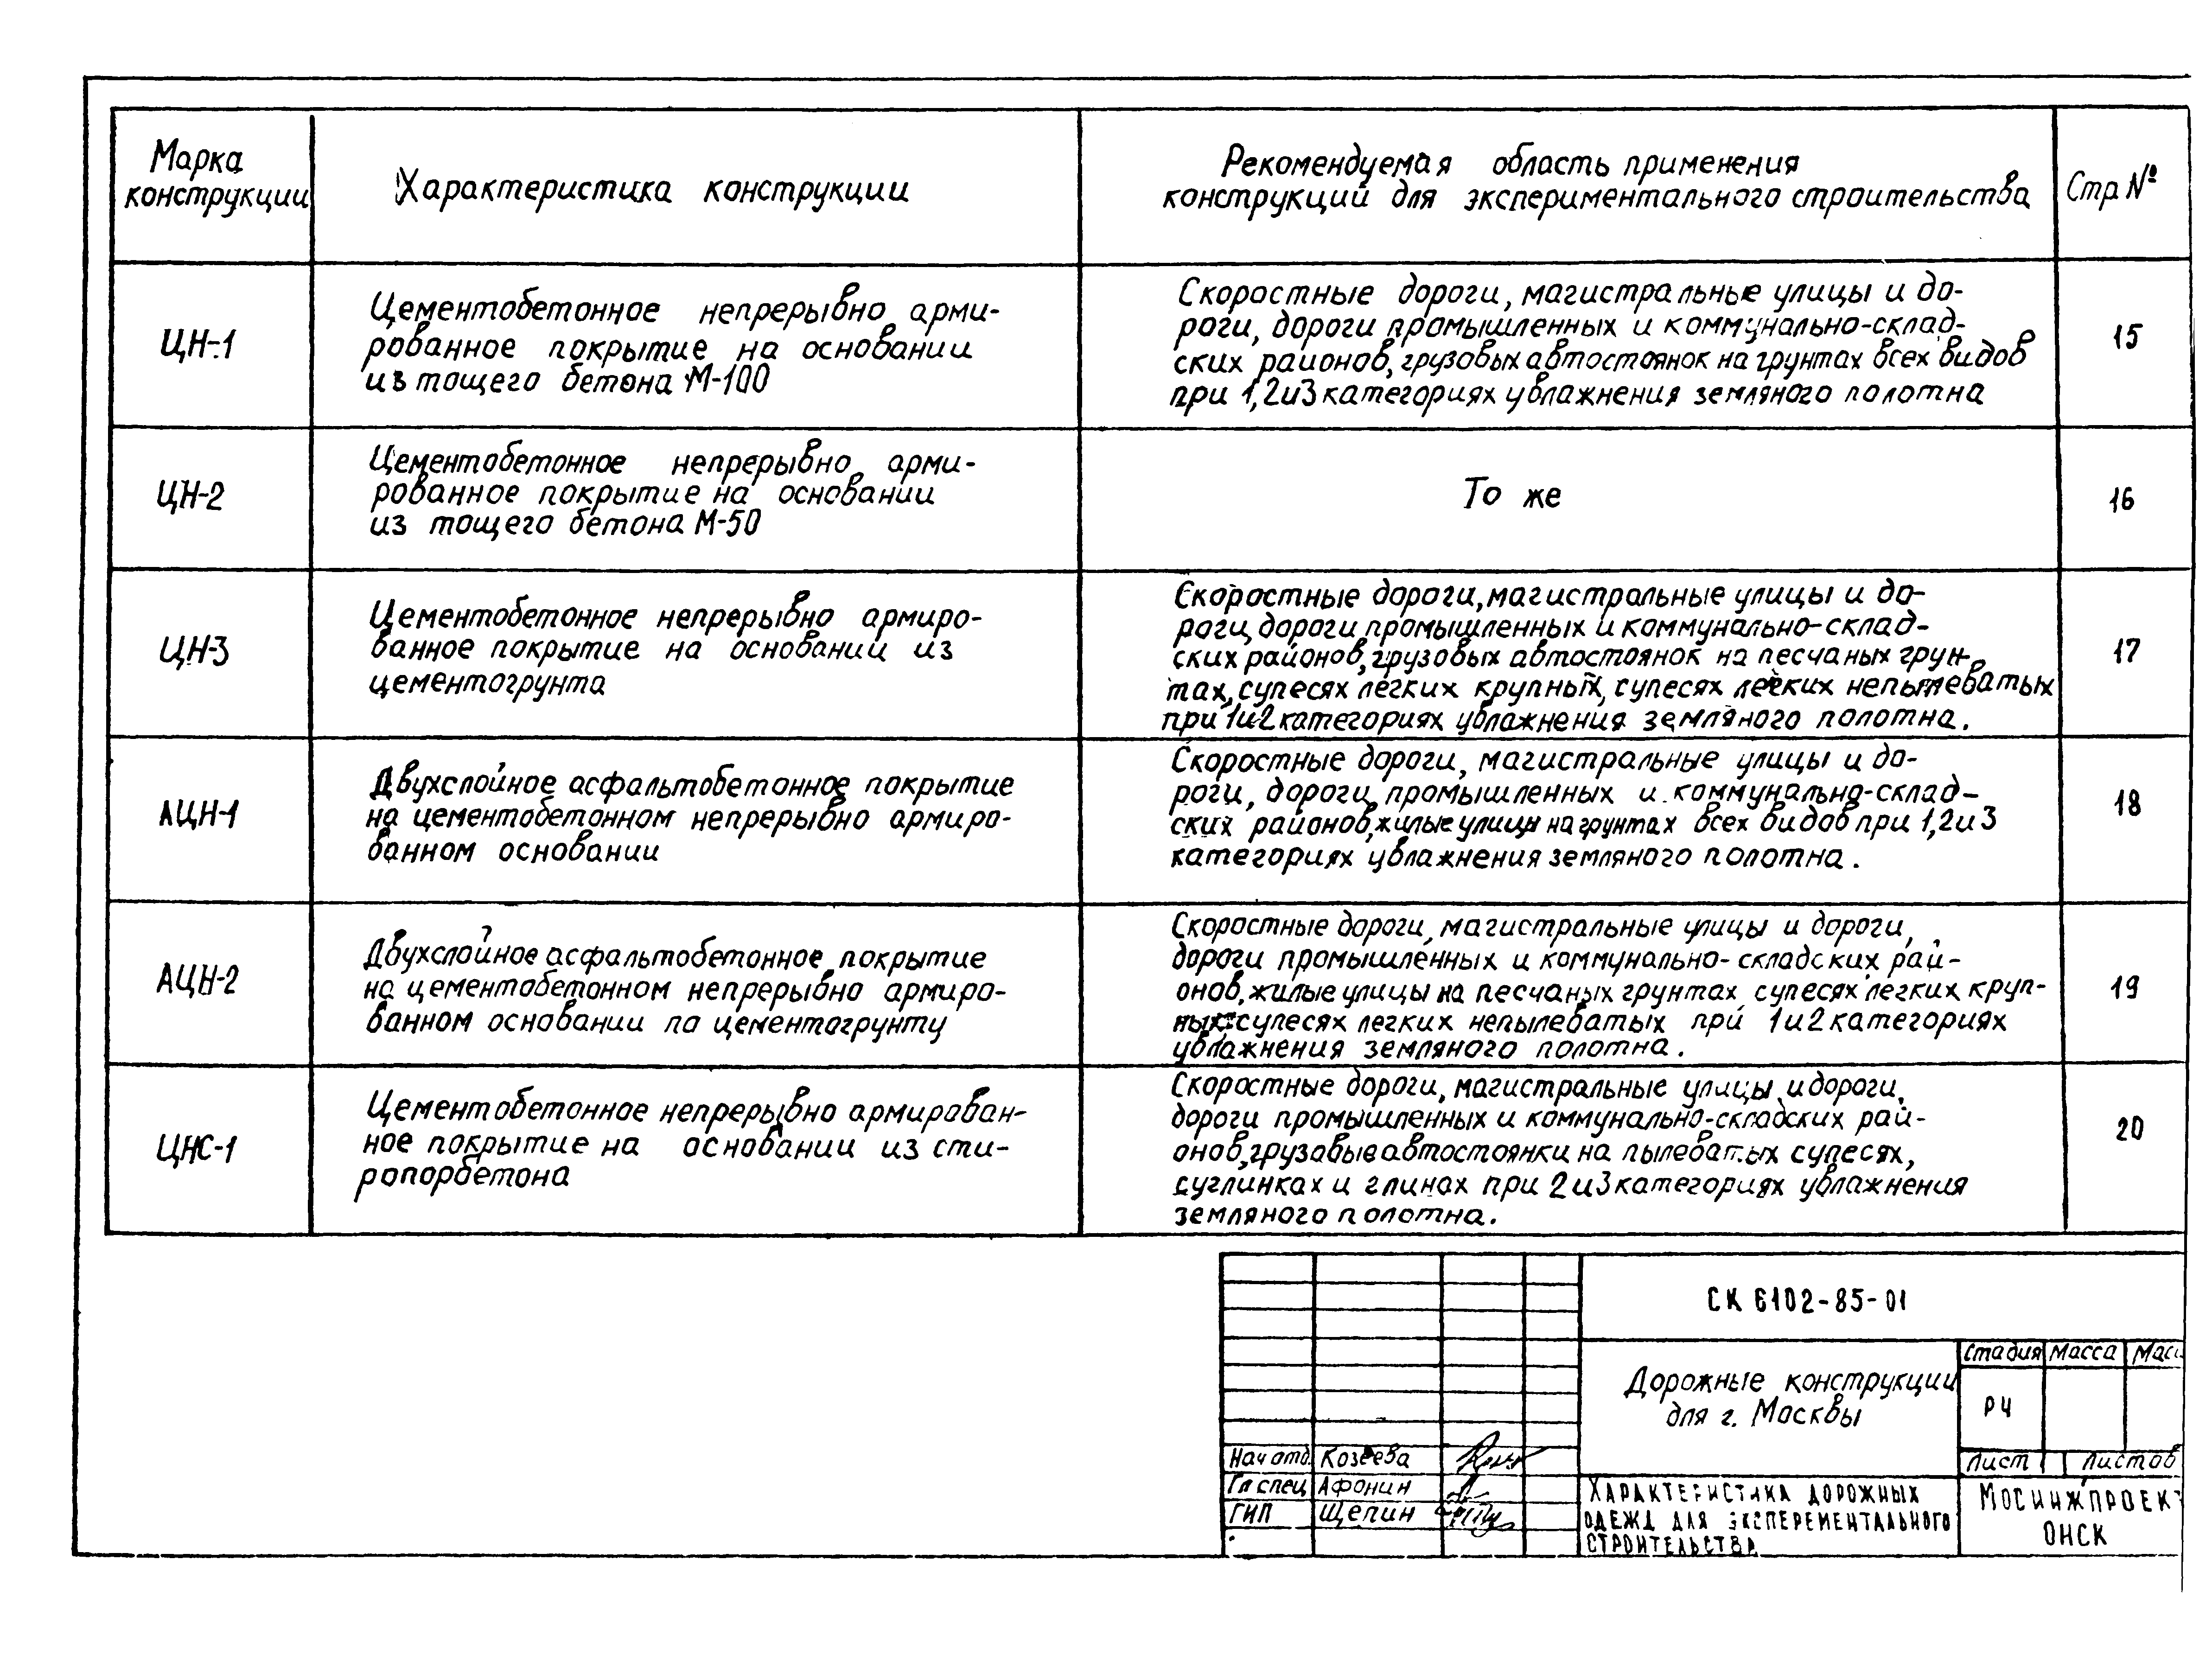 Марка
конструкции
Характеристика конструкции
Рекомендуемая область применения
конструкций для экспериментального строительства
Стр №
ЦН-1
Цементобетонное непрерывно арми-
рованное покрытие на основании
из тощего бетона М-100
Скоростные дороги, магистральные улицы и до-
роги, дороги промышленных и коммунально-склад-
ских районов, грузовых автостоянок на грунтах всех видов
при 1,2и3 категориях увлажнения земляного полотна
15
ЦН-2
Цементобетонное непрерывно арми-
рованное покрытие на основании
из тощего бетона М-50
То же
16
ЦН-3
Цементобетонное непрерывно армиро-
ванное покрытие на основании из
цементогрунта
Скоростные дороги, магистральные улицы и до-
роги, дороги промышленных и коммунально-склад-
ских районов, грузовых автостоянок на песчаных грун-
тах, супесях легких крупных, супесях легких непылеватых
при 1и2 категориях увлажнения земляного полотна.
17
АЦН-1
Двухслойное асфальтобетонное покрытие
на цементобетонном непрерывно армиро-
ванном основании
Скоростные дороги, магистральные улицы и до-
роги, дороги промышленных и коммунально-склад-
ских районов, жилые улицы на грунтах всех видов при 1,2и3
категориях увлажнения земляного полотна.
18
АЦН-2
Двухслойное асфальтобетонное покрытие
на цементобетонном непрерывно армиро-
ванном основании по цементогрунту
Скоростные дороги, магистральные улицы и дороги,
дороги промышленных и коммунально-складских рай-
онов, жилые улицы на песчаных грунтах супесях легких круп-
ных, супесях легких непылеватых при 1и2 категориях
увлажнения земляного полотна.
19
ЦНС-1
Цементобетонное непрерывно армирован-
ное покрытие на основании из сти-
ропорбетона
Скоростные дороги, магистральные улицы и дороги,
дороги промышленных и коммунально-складских рай-
онов, грузовые автостоянки на пылеватых супесях,
суглинках и глинах при 2и3 категориях увлажнения
земляного полотна.
20
СК 6102-85-01
Дорожные конструкции
для г. Москвы
Стадия Масса Мас
РЧ
Лист Листов
Нач отд. Козеева
Гл спец Афонин
ГИП Щепин
Характеристика дорожных
одежд для эксперементального
строительства
Мосинжпроек
ОНСК